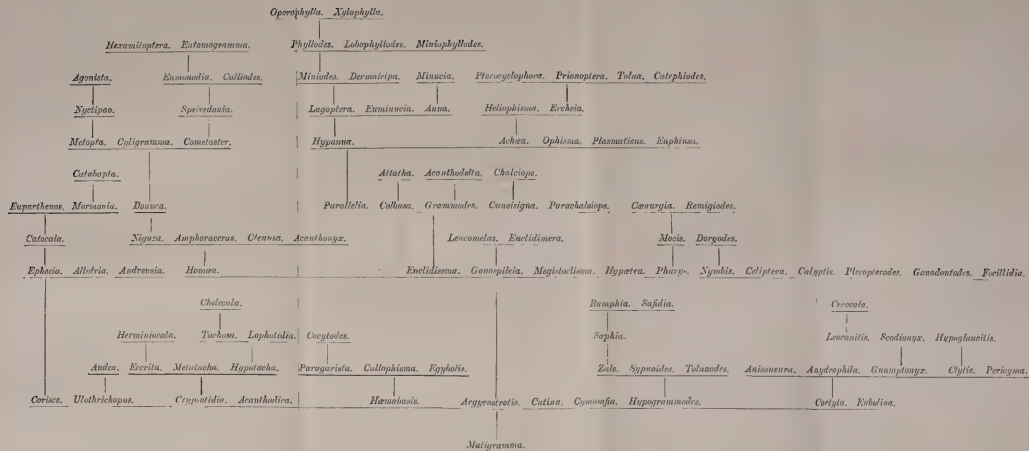 Oporophylla. Xylophylla.
Hexamitoptera. Entomogramma. Phyllodes. Lobophyllodes. Miniophyllodes.
Agonista. Enmonodia. Calliodes. Miniodes. Dermaleipa. Minucia. Pterocyclophora. Prionoptera. Tolna. Catephiodes.
Nyctipao. Speiredonia. Lagoptera. Euminucia. Anua. Heliophisma. Ercheia.
Metopta. Cyligramma. Cometaster. Hypanua. Achæa. Ophisma. Plasmaticus. Euphinsa.
Catahopta. Attatha. Acanthodelta. Chalciope.
Euparthenos. Mormonia. Donuca. Parallelia. Colbusa. Grammodes. Cuneisigna. Parachalciope. Cœnurgia. Remigiodes.
Catocala. Niguza. Amphoraceras. Ctenusa. Acanthonyx. Leucomelas. Euclidimera. Mocis. Doryodes.
Ephesia. Allotria. Andrensia. Homæa. Euclidisema. Gonospileia. Megistoclisma. Hypætra. Pharys. Nymbis. Celiptera. Calyptis. Plecopterodes. Gonodontodes. Focillidia.
Chelecala. Rumphia. Safidia. Cerocala.
Herminiocala. Tachosa. Lophotidia. Cocytodes. Saphia. Leucanitis. Scodionyx. Hypoglaucitis.
Audea. Eccrita. Metatacha. Hypotacha. Paragarista. Callophisma. Egybolis. Zale. Sypnoides. Tolnaodes. Anisoneura. Anydrophila. Gnamptonyx. Clytie. Pericyma.
Corisce. Ulothrichopus. Cryptotidia. Acanthodica. Hæmabasis. Argyrostrotis. Catina. Cymosafia. Hypogrammodes. Cortyta. Eubolina.
Matigramma.